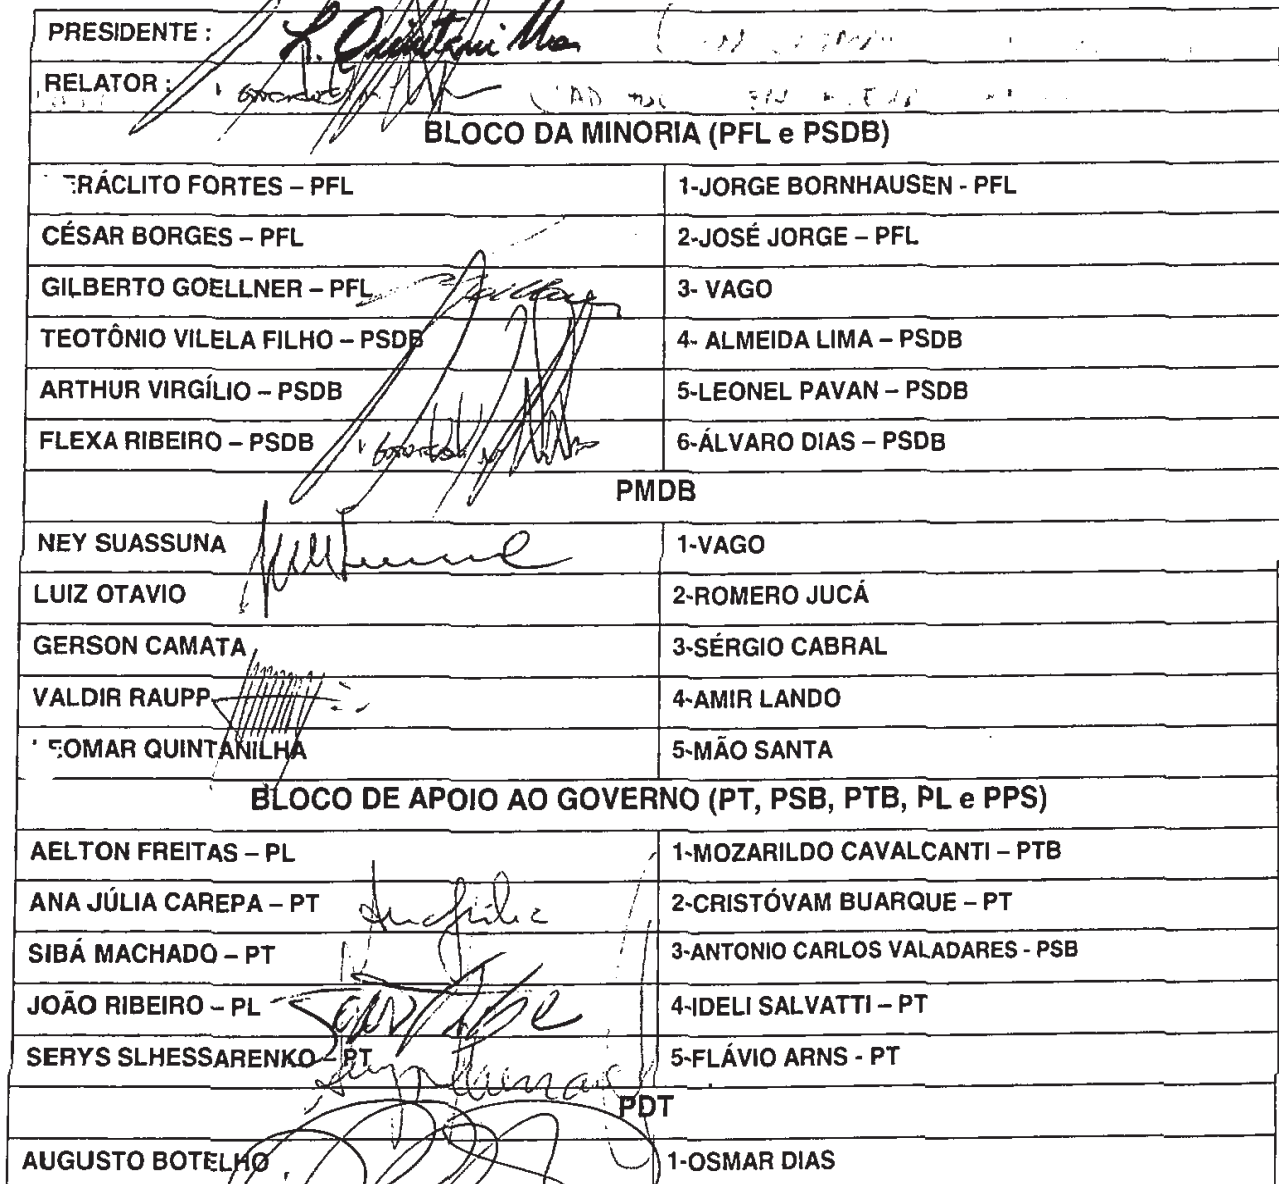 PRESIDENTE : L. Quintanilha
RELATOR :
BLOCO DA MINORIA (PFL e PSDB)
ERÁCLITO FORTES – PFL 1-JORGE BORNHAUSEN - PFL
CÉSAR BORGES – PFL 2-JOSÉ JORGE – PFL
GILBERTO GOELLNER – PFL 3- VAGO
TEOTÔNIO VILELA FILHO – PSDB 4- ALMEIDA LIMA – PSDB
ARTHUR VIRGÍLIO – PSDB 5-LEONEL PAVAN – PSDB
FLEXA RIBEIRO – PSDB 6-ÁLVARO DIAS – PSDB
PMDB
NEY SUASSUNA 1-VAGO
LUIZ OTAVIO 2-ROMERO JUCÁ
GERSON CAMATA 3-SÉRGIO CABRAL
VALDIR RAUPP 4-AMIR LANDO
EOMAR QUINTANILHA 5-MÃO SANTA
BLOCO DE APOIO AO GOVERNO (PT, PSB, PTB, PL e PPS)
AELTON FREITAS – PL 1-MOZARILDO CAVALCANTI – PTB
ANA JÚLIA CAREPA – PT 2-CRISTÓVAM BUARQUE – PT
SIBÁ MACHADO – PT 3-ANTONIO CARLOS VALADARES - PSB
JOÃO RIBEIRO – PL 4-IDELI SALVATTI – PT
SERYS SLHESSARENKO – PT 5-FLÁVIO ARNS - PT
PDT
AUGUSTO BOTELHO 1-OSMAR DIAS